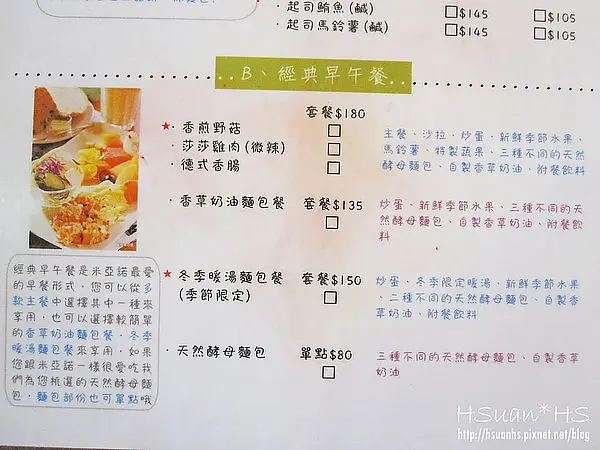 · 起司鮪魚(鹹) □$145 □$105
· 起司馬鈴薯(鹹) □$145 □$105
B、經典早午餐
套餐$180
★· 香煎野菇 □
· 莎莎雞肉(微辣) □
· 德式香腸 □
主餐、沙拉、炒蛋、新鮮季節水果、
馬鈴薯、特製蔬果、三種不同的天然
酵母麵包、自製香草奶油、附餐飲料
· 香草奶油麵包餐 套餐$135
□
炒蛋、新鮮季節水果、三種不同的天
然酵母麵包、自製香草奶油、附餐飲
料
★· 冬季暖湯麵包餐 套餐$150
(季節限定) □
炒蛋、冬季限定暖湯、新鮮季節水果
、二種不同的天然酵母麵包、自製香
草奶油、附餐飲料
· 天然酵母麵包 單點$80
□
三種不同的天然酵母麵包、自製香草
奶油
經典早午餐是米亞諾最愛
的早餐形式，您可以從多
款主餐中選擇其中一種來
享用，也可以選擇較簡單
的香草奶油麵包餐、冬季
暖湯麵包餐來享用，如果
您跟米亞諾一樣很愛吃我
們為您挑選的天然酵母麵
包，麵包部份也可單點哦
HSuan*HS
http://hsuanhs.pixnet.net/blog